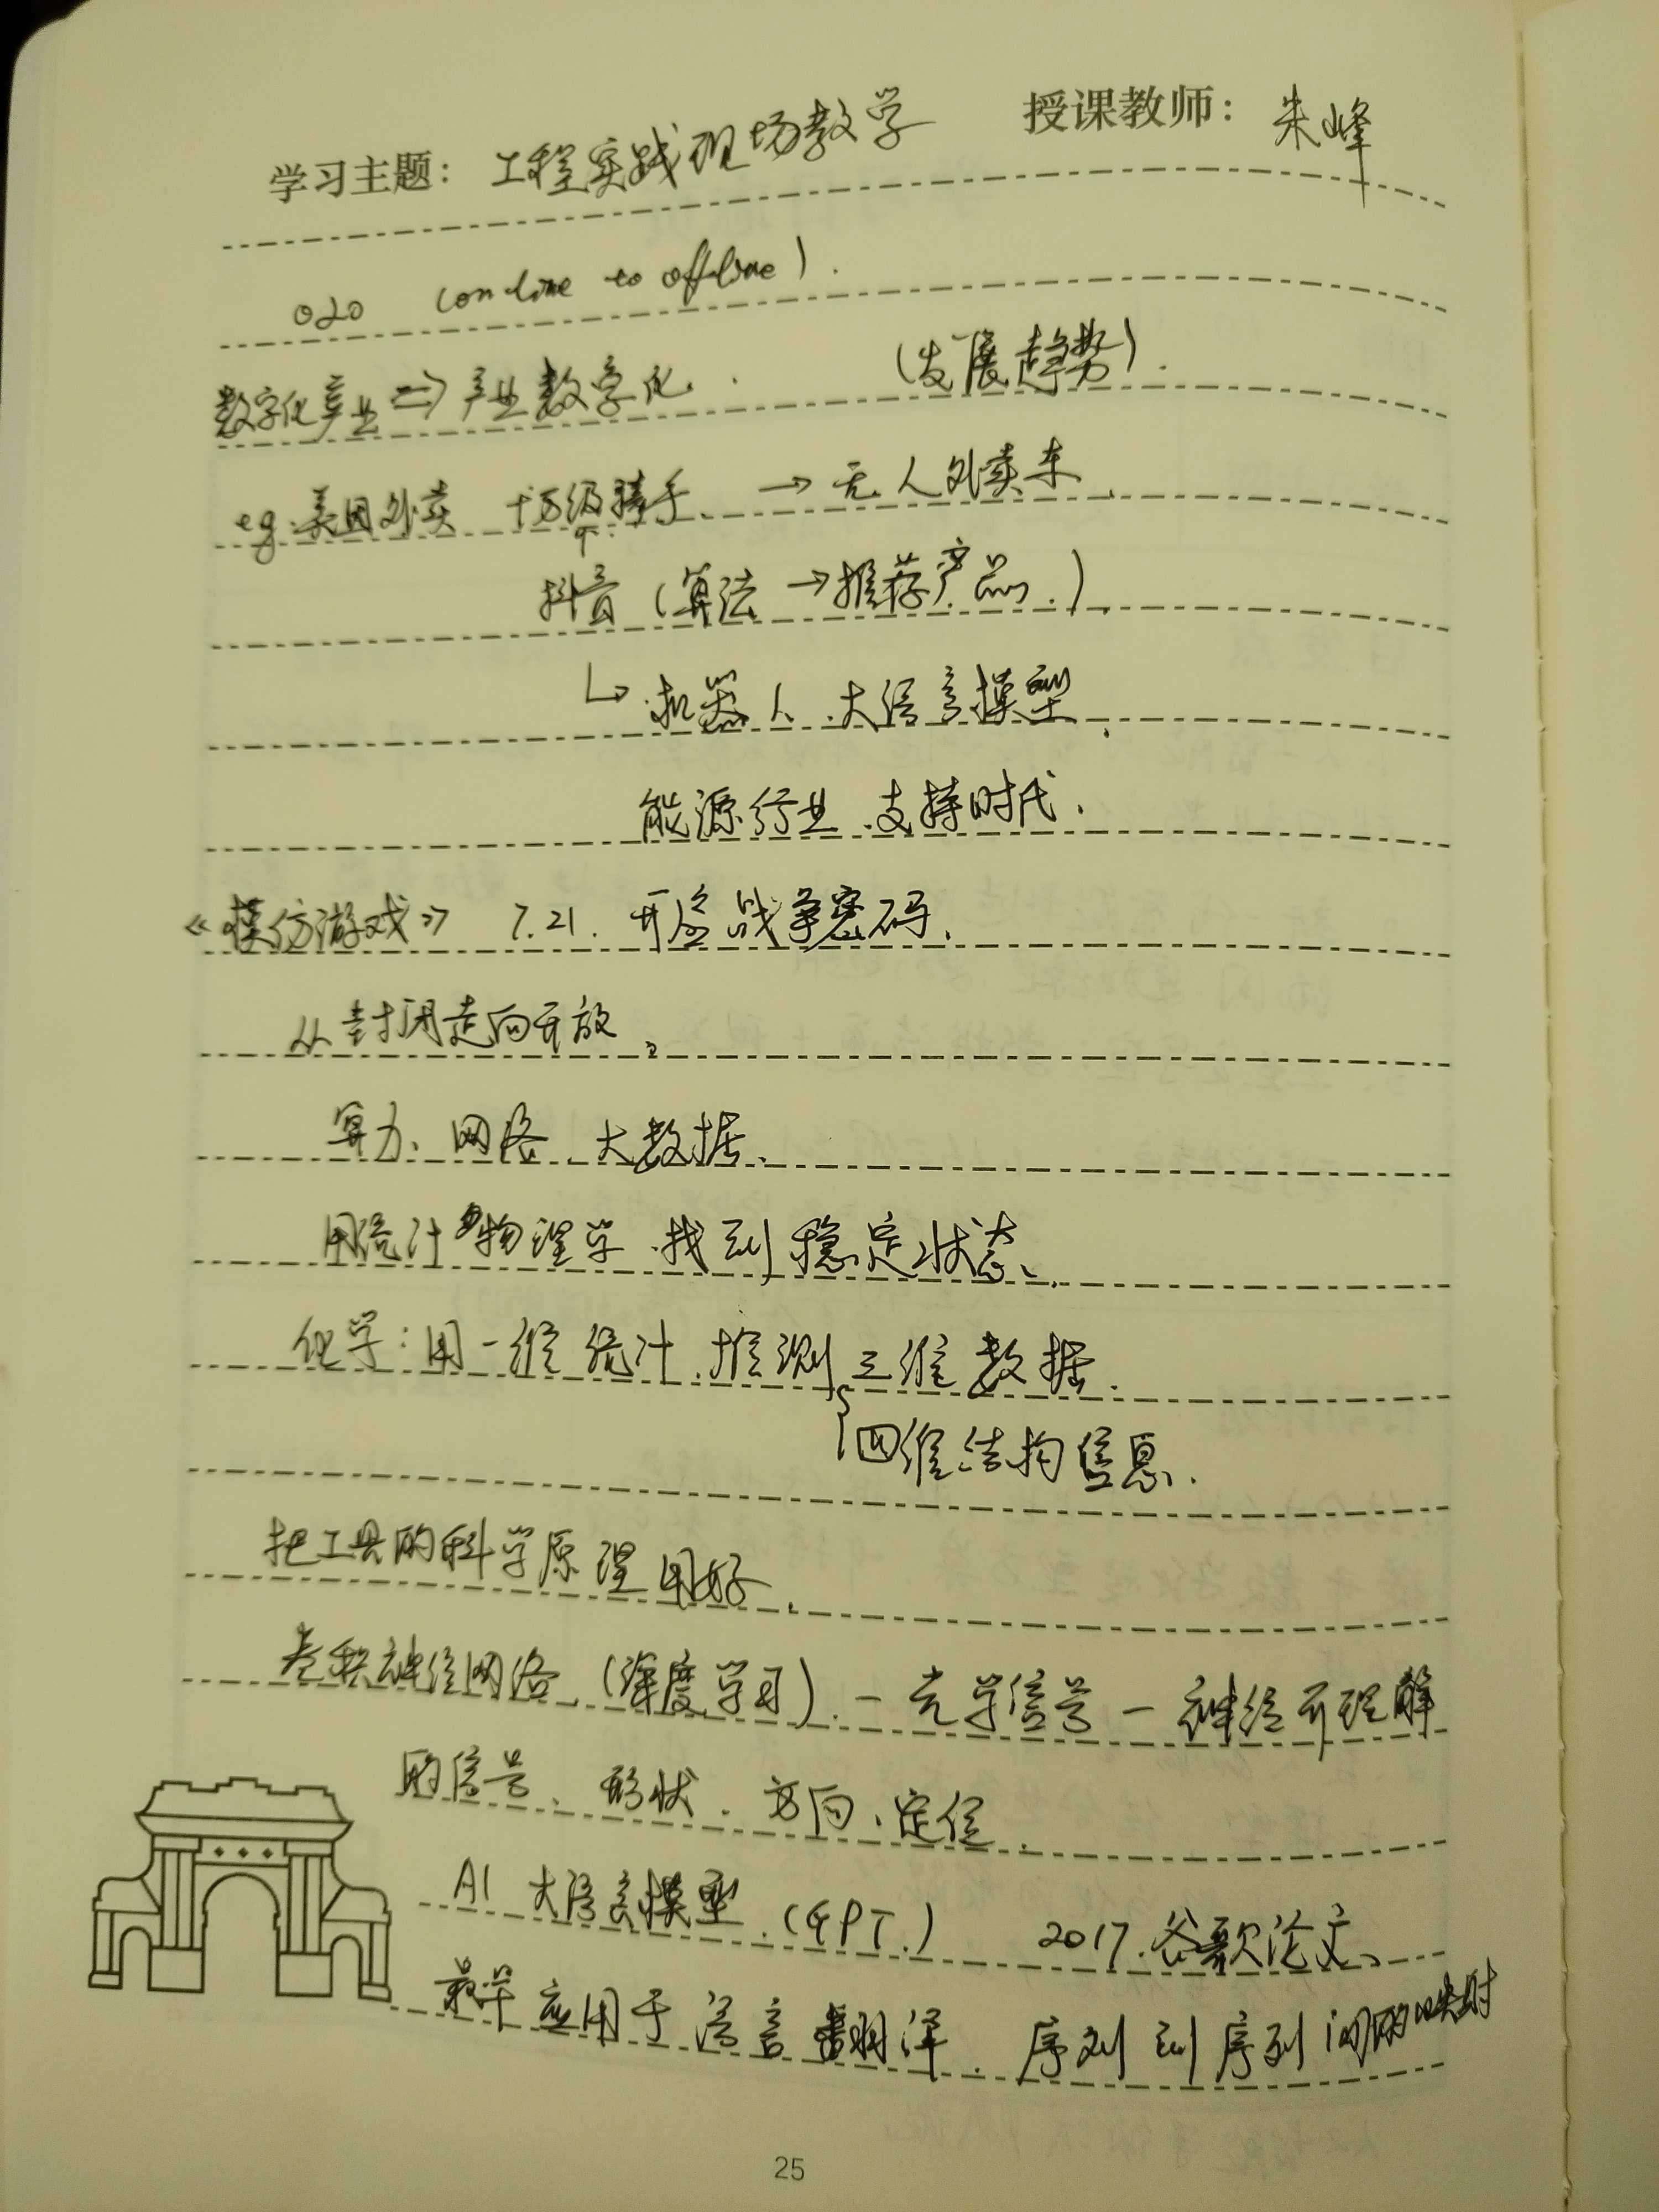 学习主题: 工程实践现场教学 授课教师: 朱峰
O2O (on line to offline).
数字化产业 => 产业数字化. (发展趋势).
eg.美团外卖 十万级骑手、→无人外卖车
抖音(算法→推荐产品.).
↳机器人.大语言模型.
能源行业.支持时代.
《模仿游戏》 7.21. 开启战争密码.
从封闭走向开放.
算力、网络、大数据、
用统计物理学.找到稳定状态、
化学:用一维统计.推测三维数据.
四维结构信息.
把工具的科学原理用好.
卷积神经网络.(深度学习).—光学信号—神经可理解
的信号、形状.方向、定位.
AI 大语言模型.(GPT.) 2017.谷歌论文、
最早应用于语言翻译.序列到序列间的映射
25